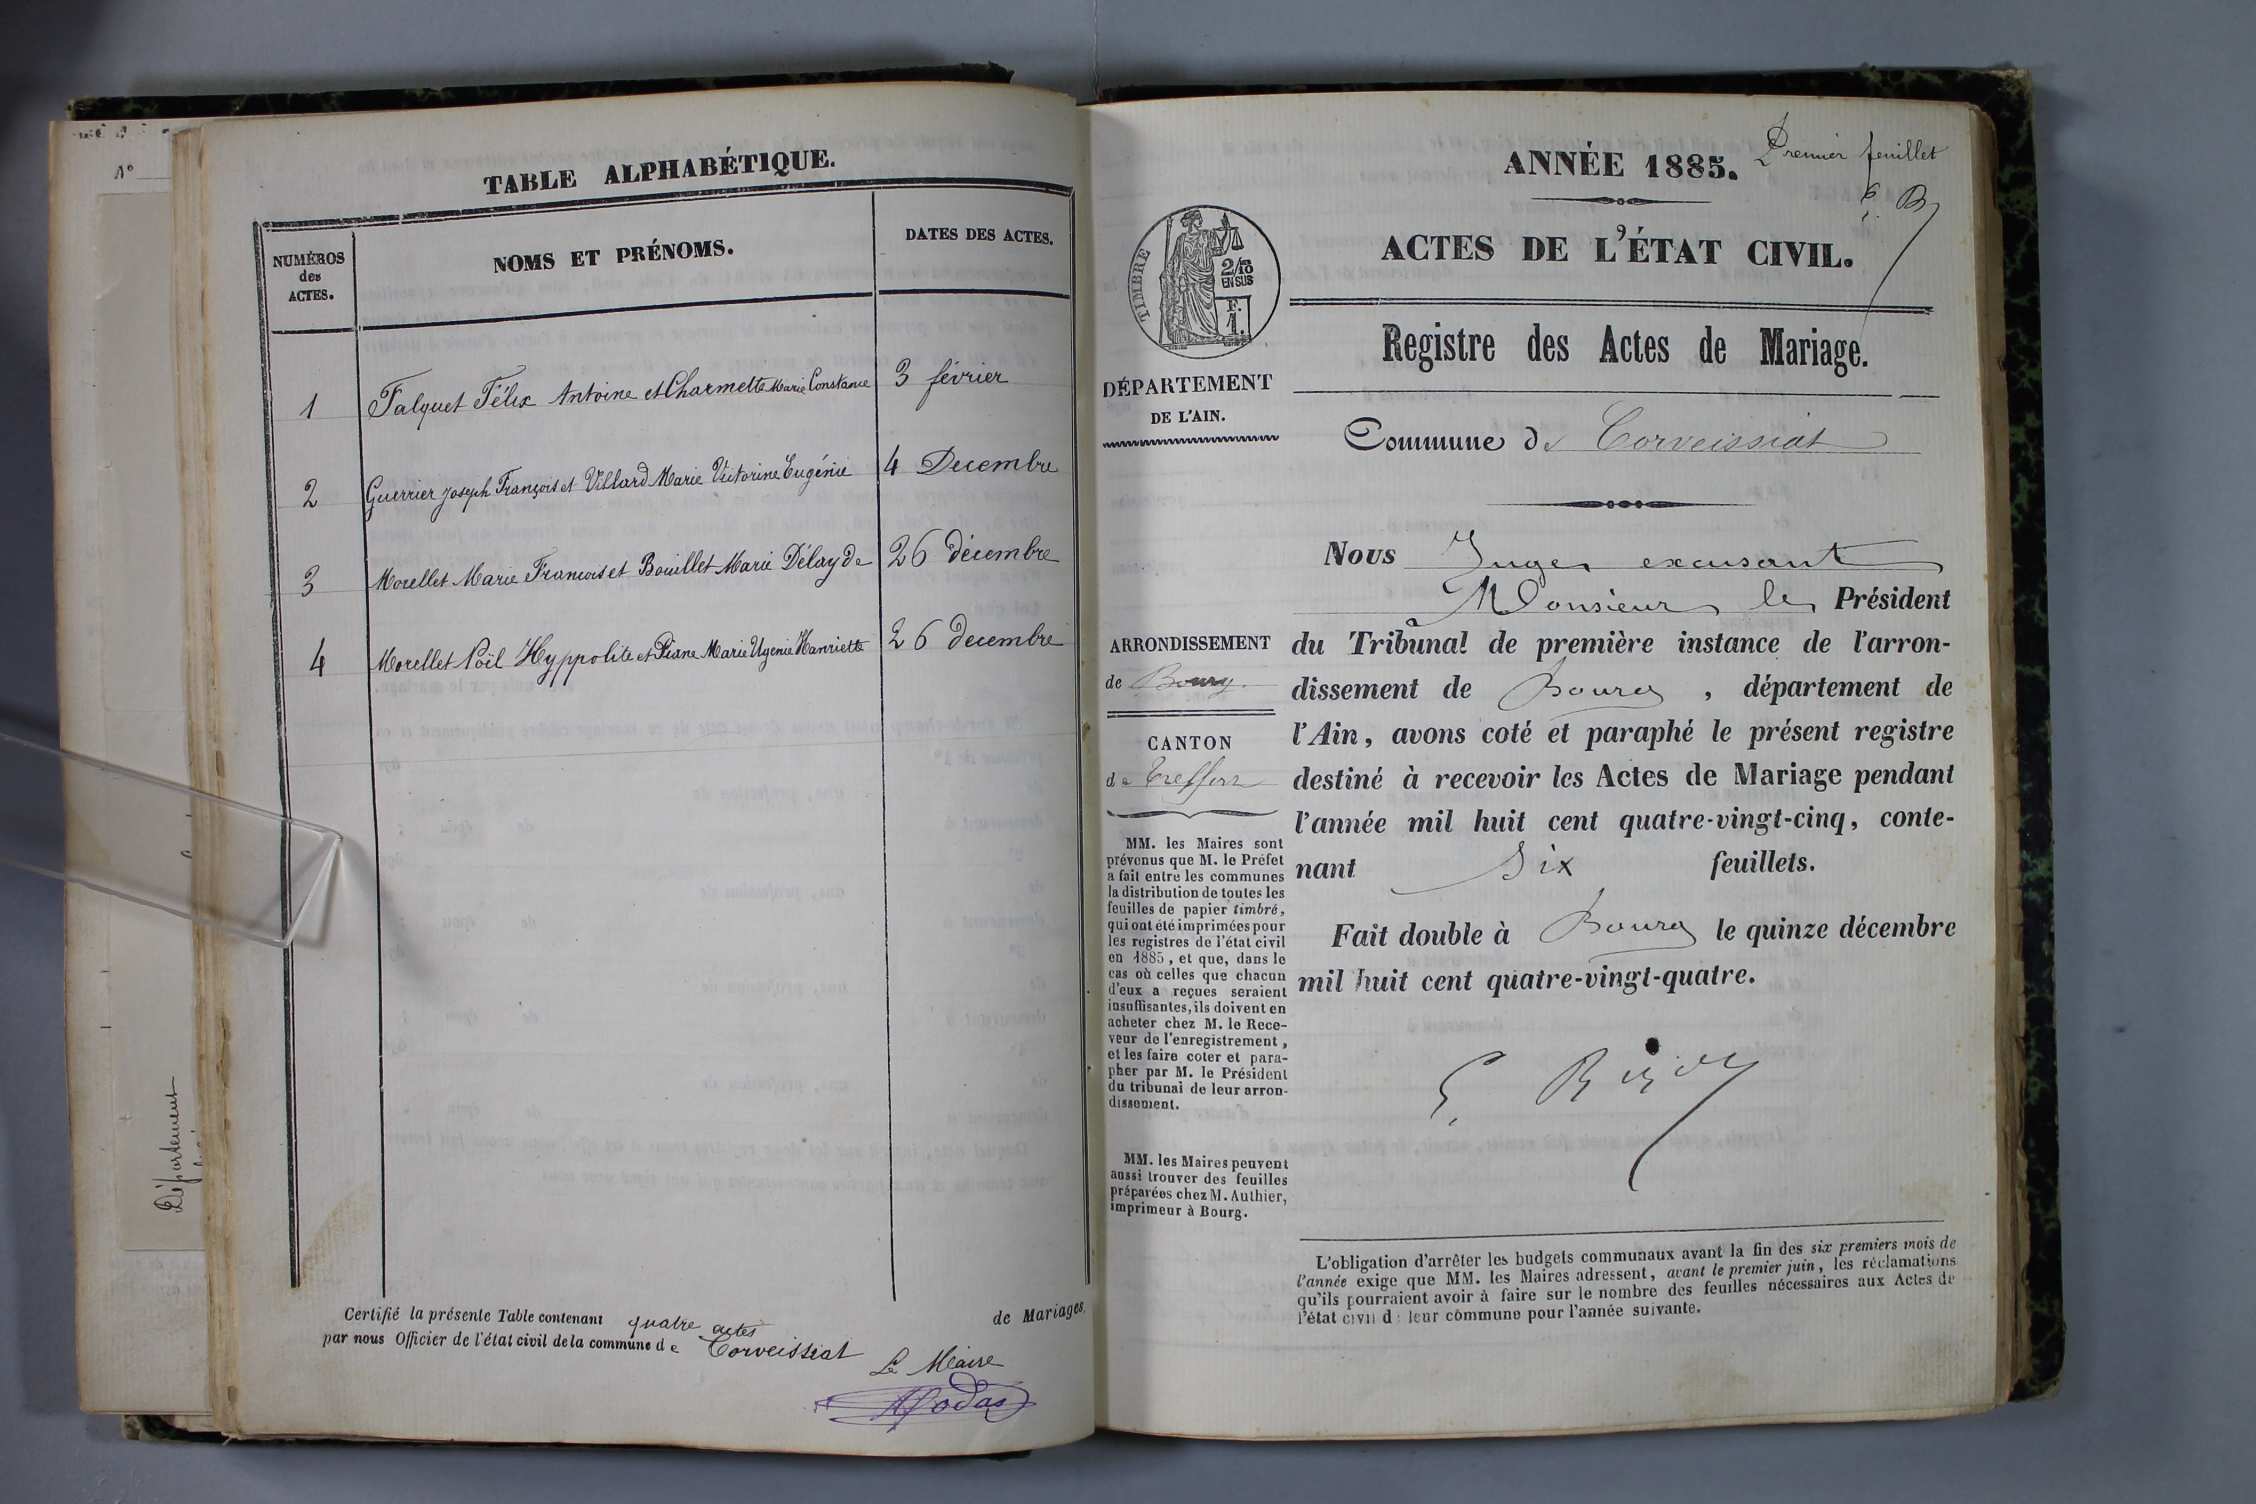 TABLE ALPHABÉTIQUE.
NUMÉROS
des
ACTES.
NOMS ET PRÉNOMS.
DATES DES ACTES.
1 Falquet Félix Antoine et Charmette Marie Constance 3 février
2 Guerrier Joseph François et Villard Marie Victorine Eugénie 4 Decembre
3 Morellet Marie François et Bouillet Marie Délayde 26 décembre
4 Morellet Noël Hyppolite et Piane Marie Ugenie Hanriette 26 decembre
Certifié la présente Table contenant quatre actes de Mariages,
par nous Officier de l'état civil de la commune de Corveissiat
Le Maire
Département
Premier feuillet
ANNÉE 1885.
ACTES DE L'ÉTAT CIVIL.
TIMBRE
2/10
EN SUS
F.
1.
Registre des Actes de Mariage.
DÉPARTEMENT
DE L'AIN.
Commune de Corveissiat
Nous Juge excusant
Monsieur le Président
du Tribunal de première instance de l'arron-
dissement de Bourg, département de
l'Ain, avons coté et paraphé le présent registre
destiné à recevoir les Actes de Mariage pendant
l'année mil huit cent quatre-vingt-cinq, conte-
nant Six feuillets.
Fait double à Bourg le quinze décembre
mil huit cent quatre-vingt-quatre.
ARRONDISSEMENT
de Bourg.
CANTON
de Treffort
MM. les Maires sont
prévenus que M. le Préfet
a fait entre les communes
la distribution de toutes les
feuilles de papier timbré,
qui ont été imprimées pour
les registres de l'état civil
en 1885, et que, dans le
cas où celles que chacun
d'eux a reçues seraient
insuffisantes, ils doivent en
acheter chez M. le Rece-
veur de l'enregistrement,
et les faire coter et para-
pher par M. le Président
du tribunal de leur arron-
dissement.
MM. les Maires peuvent
aussi trouver des feuilles
préparées chez M. Authier,
imprimeur à Bourg.
L'obligation d'arrêter les budgets communaux avant la fin des six premiers mois de
l'année exige que MM. les Maires adressent, avant le premier juin, les réclamations
qu'ils pourraient avoir à faire sur le nombre des feuilles nécessaires aux Actes de
l'état civil de leur commune pour l'année suivante.